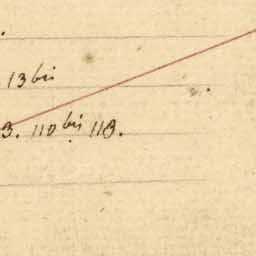 13 bis
3. 110 bis 113.